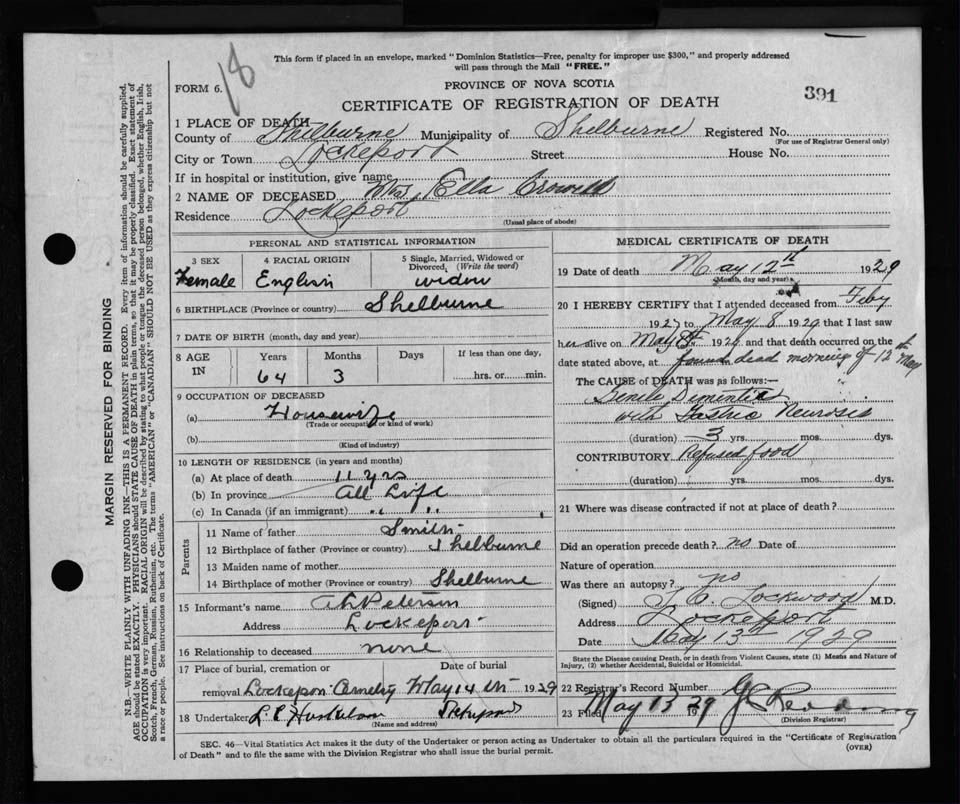 This form if placed in an envelope, marked "Dominion Statistics—Free, penalty for improper use $300," and properly addressed
will pass through the Mail "FREE."
18
FORM 6.
PROVINCE OF NOVA SCOTIA
CERTIFICATE OF REGISTRATION OF DEATH
391
1 PLACE OF DEATH
County of Shelburne Municipality of Shelburne Registered No.
(For use of Registrar General only)
City or Town Lockeport Street House No.
If in hospital or institution, give name
2 NAME OF DECEASED Mrs. Ella Crowell
Residence Lockeport
(Usual place of abode)
PERSONAL AND STATISTICAL INFORMATION
3 SEX 4 RACIAL ORIGIN 5 Single, Married, Widowed or
Divorced, (Write the word)
Female English widow
6 BIRTHPLACE (Province or country) Shelburne
7 DATE OF BIRTH (month, day and year)
8 AGE IN Years Months Days If less than one day,
64 3 hrs. or min.
9 OCCUPATION OF DECEASED
(a) Housewife
(Trade or occupation or kind of work)
(b)
(Kind of industry)
10 LENGTH OF RESIDENCE (in years and months)
(a) At place of death 11 yrs
(b) In province All Life
(c) In Canada (if an immigrant) " "
Parents
11 Name of father Smith
12 Birthplace of father (Province or country) Shelburne
13 Maiden name of mother
14 Birthplace of mother (Province or country) Shelburne
15 Informant's name Petersen
Address Lockeport
16 Relationship to deceased none
17 Place of burial, cremation or Date of burial
removal Lockeport May 14 th 1929
18 Undertaker
(Name and address)
MEDICAL CERTIFICATE OF DEATH
19 Date of death May 12th 1929
(Month, day and year)
20 I HEREBY CERTIFY that I attended deceased from Feby
1927 to May 8 1929 that I last saw
her alive on May 8th 1929 and that death occurred on the
date stated above, at found dead morning of 12th May
The CAUSE of DEATH was as follows:—
Senile Dimentia
with Gastric Neurosis
(duration) 3 yrs. mos. dys.
CONTRIBUTORY Refused food
(duration) yrs. mos. dys.
21 Where was disease contracted if not at place of death?
Did an operation precede death? no Date of
Nature of operation
Was there an autopsy? no
(Signed) Lockwood M.D.
Address Lockeport
Date May 13th 1929
State the Disease causing Death, or in death from Violent Causes, state (1) Means and Nature of
Injury, (2) whether Accidental, Suicidal or Homicidal.
22 Registrar's Record Number
23 Filed May 13 1929
(Division Registrar)
SEC. 46—Vital Statistics Act makes it the duty of the Undertaker or person acting as Undertaker to obtain all the particulars required in the "Certificate of Registration
of Death" and to file the same with the Division Registrar who shall issue the burial permit.
(OVER)
MARGIN RESERVED FOR BINDING
N.B.—WRITE PLAINLY WITH UNFADING INK—THIS IS A PERMANENT RECORD. Every item of information should be carefully supplied.
AGE should be stated EXACTLY. PHYSICIANS should STATE CAUSE OF DEATH in plain terms, so that it may be properly classified. Exact statement of
OCCUPATION is very important. RACIAL ORIGIN will be described by stating to what people or tongue the deceased person belonged, whether English, Irish,
Scotch, French, German, Russian, Ruthenian, etc. The terms "AMERICAN" or "CANADIAN" SHOULD NOT BE USED as they express citizenship but not
a race or people. See instructions on back of Certificate.